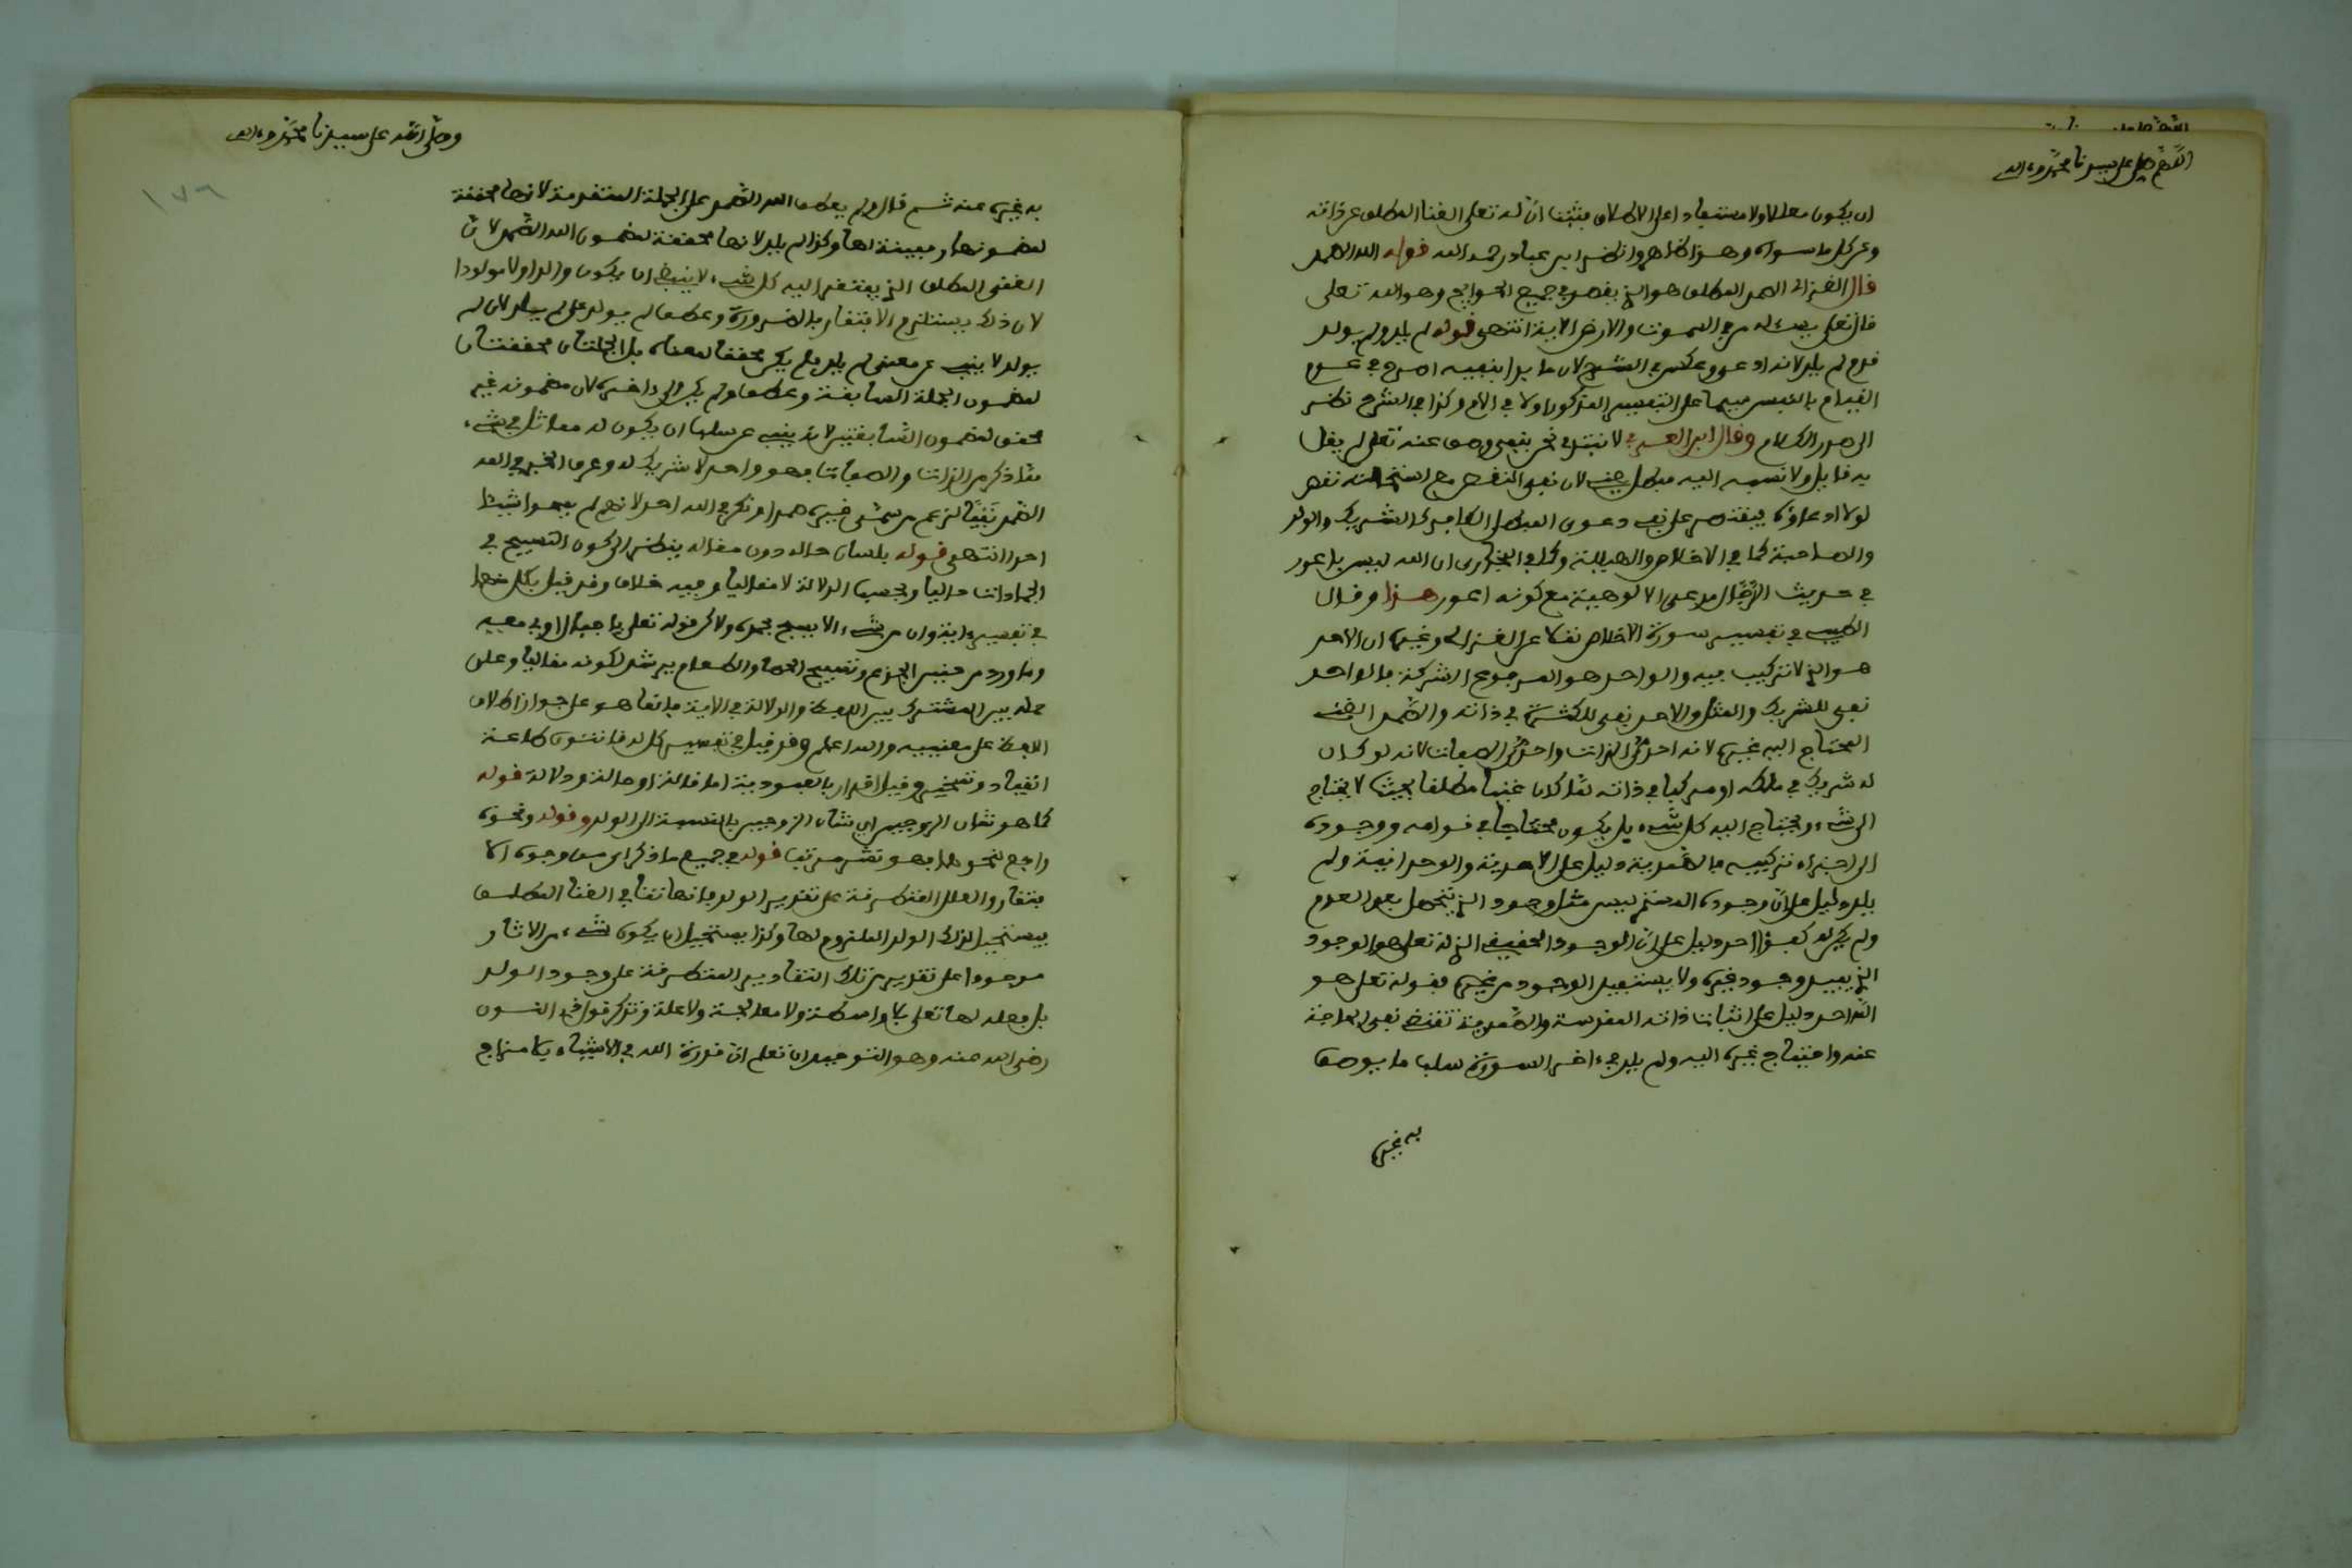 اللهم صل على سيدنا محمد وءاله
ان يكون معللا ولا مستفادا على الاطلاق فثبت ان له تعلى الغنا المطلق عن ذاته
وعن كل ما سواه وهذا ظاهر وانظر ابن عباد رحمه الله قوله الله الصمد
قال الغزالي الصمد المطلق هو الذي يقصد في جميع الحوايج وهو الله تعلى
قال تعلى يسئله من في السموت والارض الاية انتهى قوله لم يلد ولم يولد
قدم لم يلد لانه ادعي وعكس في الشرح لان ما بدا بنفيه اصرح في عدم
القيام بالنفس فيهما على التفسير المذكور اولا في الام وكذا في الشرح نظر
الى صدر الكلام وقال ابن العربي لا نبتدئ نحن بنفي وصف عنه تعلى لم يقل
به قايل ولا نسبه اليه مبطل لان نفي النقص مع استحالته نقص
لولا ادعاؤه فيقتصر على نفي دعوى المبطل الكافر كالشريك والولد
والصاحبة كما في الاخلاص والهيللة وكما في البخاري ان الله ليس باعور
في حديث الدجال مدعى الالوهية مع كونه اعور هذا وقال
الطيبي في تفسير سورة الاخلاص نقلا عن الغزالي وغيره ان الاحد
هو الذي لا تركيب فيه والواحد هو المرجوع الشركة بالواحد
نفي للشريك والمثل والاحد نفي للكثرة في ذاته والصمد الغني
المحتاج اليه غيره لانه احدي الذات واحدي الصفات لانه لو كان
له شريك في ملكه او مركبا في ذاته لما كان غنيا مطلقا بحيث لا يحتاج
الى شيء ويحتاج اليه كل شيء بل يكون محتاجا في قوامه ووجوده
الى اجزاء تركيبه فالصمدية دليل على الاحدية والوحدانية ولم
يلد دليل على ان وجوده المستمر ليس مثل وجود الذي يحصل بعد العدم
ولم يكن له كفؤا احد دليل على ان الوجود الحقيقي الذي له تعلى هو الوجود
الذي يفيد وجود غيره ولا يستفيد الوجود من غيره فقوله تعلى هو
الله احد دليل على اثبات ذاته المقدسة والصمدية تقتضي نفي الحاجة
عنه واحتياج غيره اليه ولم يلد الى ءاخر السورة سلب ما يوصف
به غيره
وصلى الله على سيدنا محمد وءاله
١٧٦
به غيره عنه ثم قال ولم يعطف الله الصمد على الجملة المتقدمة لانها محققة
لمضمونها ومبينة لها وكذا لم يلد لانها محققة لمضمون الله الصمد لان
الغنى المطلق الذي يفتقر اليه كل شيء لا ينبغي ان يكون والدا ولا مولودا
لان ذلك يستلزم الافتقار بالضرورة وعطف لم يولد على لم يلد لان لم
يولد لا ينبئ عن معنى لم يلد فلم يكن محققا لمعناه بل الجملتان محققتان
لمضمون الجملة السابقة وعطف ولم يكن الى ءاخره لان مضمونه غير
محقق لمضمون السابقتين لانه ينبئ عن سلب ان يكون له مماثل في شيء
مما ذكر من الذات والصفات فهو واحد لا شريك له وعرف الخبر في الله
الصمد نفيا لزعم من سمى غيره صمدا ونكر في الله احد لانهم لم يسموا شيئا
احدا انتهى قوله بلسان حاله دون مقاله ينظر الى كون التسبيح في
الجمادات حاليا وبحسب الدلالة لا مقاليا وفيه خلاف وقد قيل بكل منهما
في تفسير ءاية وان من شيء الا يسبح بحمده ولاكن قوله تعلى يا جبال اوبي معه
وما ورد من حنين الجذع وتسبيح الحصا والطعام يرشد لكونه مقاليا وعلى
حمله بين المشترك بين اللفظ والدلالة في الاية فانما هو على جواز اطلاق
اللفظ على معنييه والله اعلم وقد قيل في تفسير كل له قانتون طاعة
انقياد وتسخير وقيل اقرار بالعبودية اما قالة او حالة ودلالة قوله
كما هو شان الزوجين اي شان الزوجين بالنسبة الى الولد وقوله ونحوه
راجع لنحو فهو نشر مرتب قوله في جميع ما ذكر اي من وجوه الا
فتقار والعلل المتطرفة على تقدير الولد فانها تنافي الغنا المطلق
فيستحيل لذلك الولد الملزوم لها وكذا يستحيل ان يكون شيء من الاثار
موجودا على تقدير من تلك التقادير المتطرفة على وجود الولد
بل فعله لها تعلى بلا واسطة ولا معالجة ولا علة وتذكر قول ذي النون
رضي الله عنه وهو التوحيد ان تعلم ان قدرة الله في الاشياء بلا مزاج